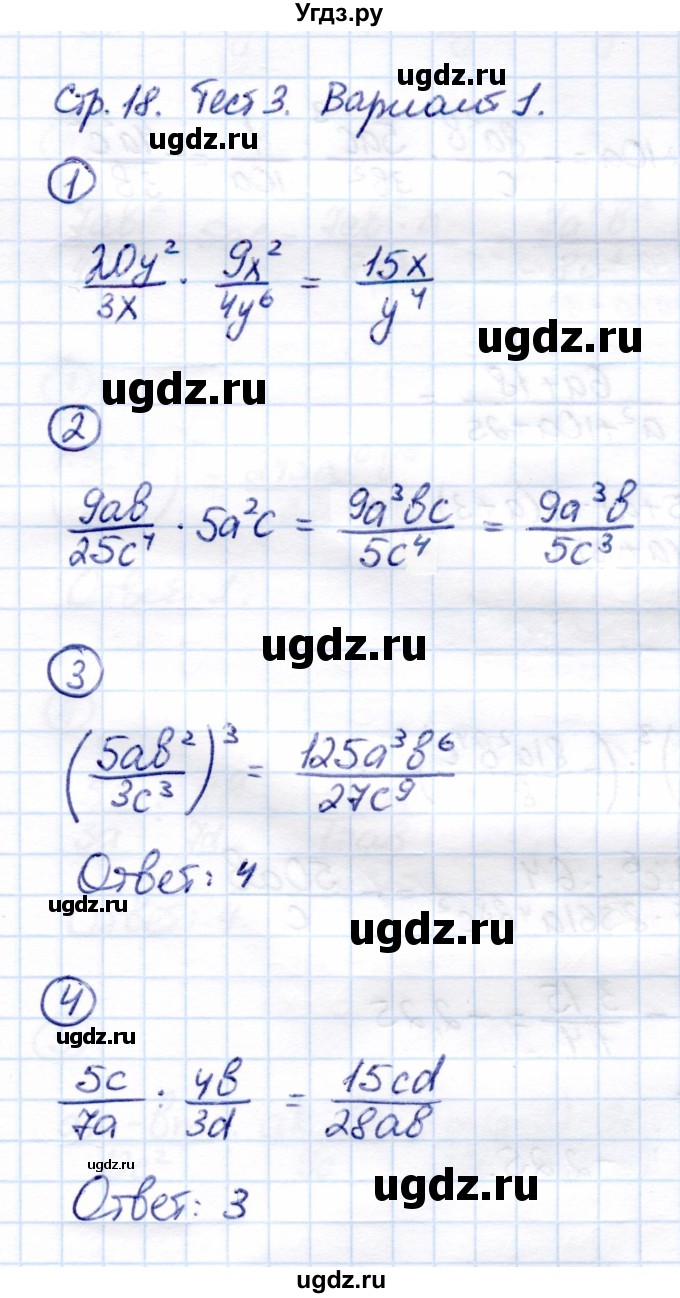 Угдз.ру
ugdz.ru
Стр. 18. Тест 3. Вариант 1.
ugdz.ru
1
20y²/3x · 9x²/4y⁶ = 15x/y⁴
ugdz.ru
ugdz.ru
2
9ab/25c⁴ · 5a²c = 9a³bc/5c⁴ = 9a³b/5c³
ugdz.ru
3
(5ab²/3c³)³ = 125a³b⁶/27c⁹
Ответ: 4
ugdz.ru
ugdz.ru
4
ugdz.ru
5c/7a : 4b/3d = 15cd/28ab
ugdz.ru
ugdz.ru
Ответ: 3
ugdz.ru